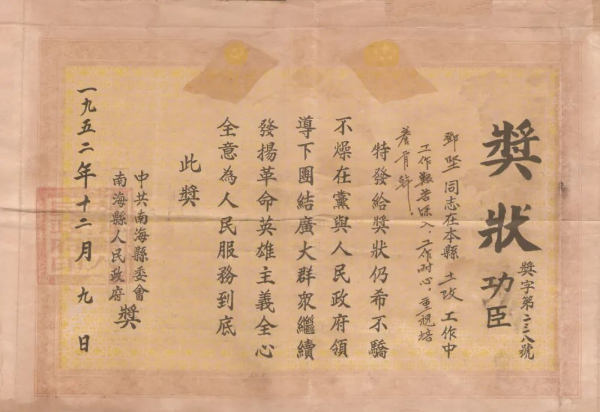 獎狀
功臣
獎字第二二八號
鄧堅同志在本縣土改工作中
工作艱苦深入、工作耐心，重視培
養骨幹，
特發給獎狀仍希不驕
不燥在黨與人民政府領
導下團結廣大群眾繼續
發揚革命英雄主義全心
全意為人民服務到底
此獎
中共南海縣委會
南海縣人民政府
獎
一九五二年十二月九日